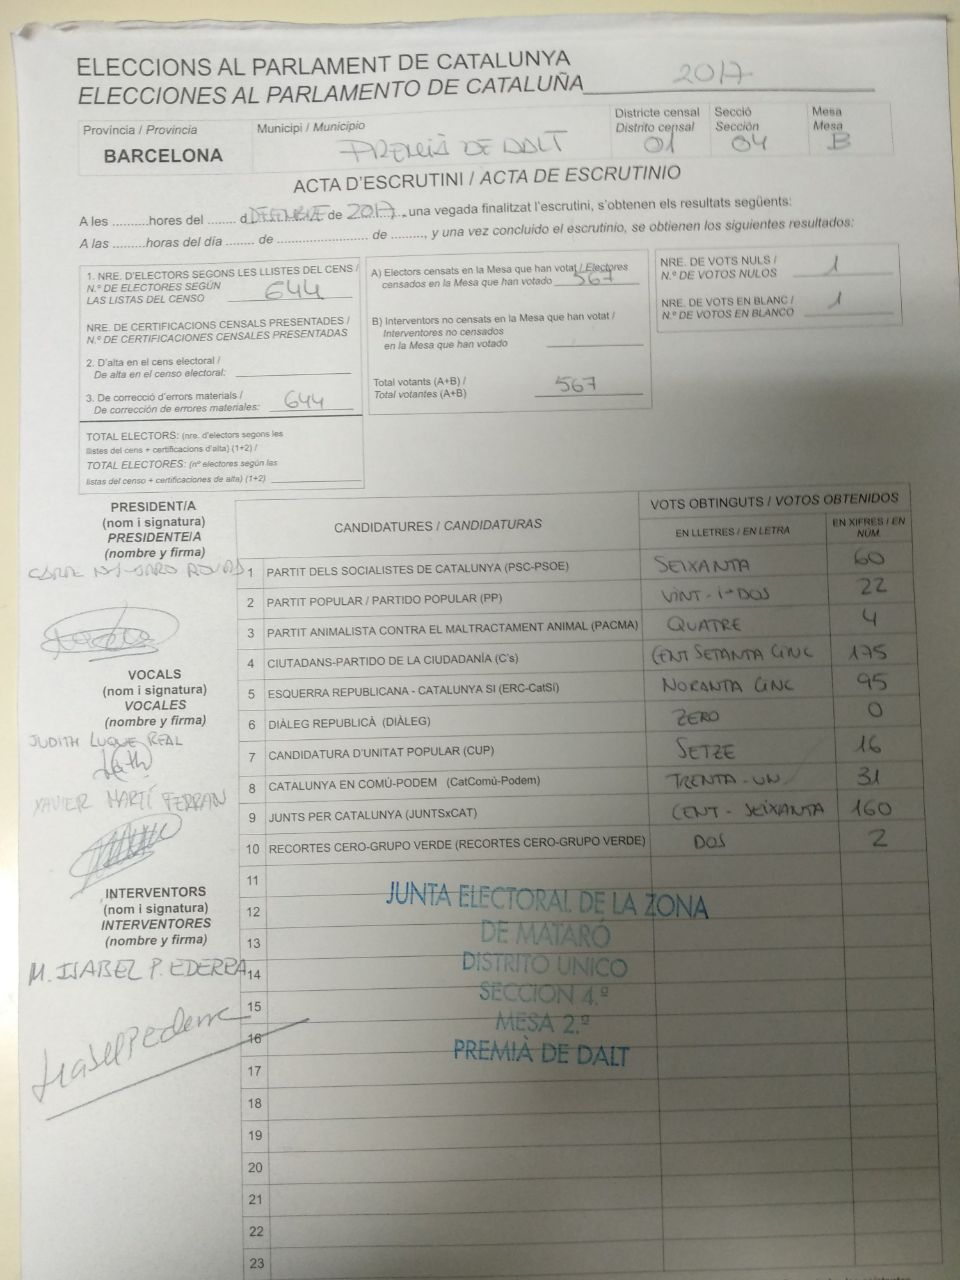 ELECCIONS AL PARLAMENT DE CATALUNYA
ELECCIONES AL PARLAMENTO DE CATALUÑA 2017
Província / Provincia
BARCELONA
Municipi / Municipio
PREMIÀ DE DALT
Districte censal
Distrito censal
01
Secció
Sección
04
Mesa
Mesa
B
ACTA D'ESCRUTINI / ACTA DE ESCRUTINIO
A les .........hores del ........ d DESEMBRE de 2017, una vegada finalitzat l'escrutini, s'obtenen els resultats següents:
A las .........horas del día ........ de ........................ de ........., y una vez concluido el escrutinio, se obtienen los siguientes resultados:
1. NRE. D'ELECTORS SEGONS LES LLISTES DEL CENS /
N.º DE ELECTORES SEGÚN
LAS LISTAS DEL CENSO 644
NRE. DE CERTIFICACIONS CENSALS PRESENTADES /
N.º DE CERTIFICACIONES CENSALES PRESENTADAS
2. D'alta en el cens electoral /
De alta en el censo electoral:
3. De correcció d'errors materials /
De corrección de errores materiales: 644
TOTAL ELECTORS: (nre. d'electors segons les
llistes del cens + certificacions d'alta) (1+2) /
TOTAL ELECTORES: (nº electores según las
listas del censo + certificaciones de alta) (1+2)
A) Electors censats en la Mesa que han votat / Electores
censados en la Mesa que han votado 567
B) Interventors no censats en la Mesa que han votat /
Interventores no censados
en la Mesa que han votado
Total votants (A+B) /
Total votantes (A+B) 567
NRE. DE VOTS NULS /
N.º DE VOTOS NULOS 1
NRE. DE VOTS EN BLANC /
N.º DE VOTOS EN BLANCO 1
PRESIDENT/A
(nom i signatura)
PRESIDENTE/A
(nombre y firma)
VOCALS
(nom i signatura)
VOCALES
(nombre y firma)
JUDITH LUQUE REAL
XAVIER MARTÍ FERRAN
INTERVENTORS
(nom i signatura)
INTERVENTORES
(nombre y firma)
M. ISABEL P. EDERRA
CANDIDATURES / CANDIDATURAS
VOTS OBTINGUTS / VOTOS OBTENIDOS
EN LLETRES / EN LETRA
EN XIFRES / EN NÚM.
1 PARTIT DELS SOCIALISTES DE CATALUNYA (PSC-PSOE) SEIXANTA 60
2 PARTIT POPULAR / PARTIDO POPULAR (PP) VINT-I-DOS 22
3 PARTIT ANIMALISTA CONTRA EL MALTRACTAMENT ANIMAL (PACMA) QUATRE 4
4 CIUTADANS-PARTIDO DE LA CIUDADANÍA (C's) CENT SETANTA CINC 175
5 ESQUERRA REPUBLICANA - CATALUNYA SI (ERC-CatSí) NORANTA CINC 95
6 DIÀLEG REPUBLICÀ (DIÀLEG) ZERO 0
7 CANDIDATURA D'UNITAT POPULAR (CUP) SETZE 16
8 CATALUNYA EN COMÚ-PODEM (CatComú-Podem) TRENTA-UN 31
9 JUNTS PER CATALUNYA (JUNTSxCAT) CENT-SEIXANTA 160
10 RECORTES CERO-GRUPO VERDE (RECORTES CERO-GRUPO VERDE) DOS 2
11
12
13
14
15
16
17
18
19
20
21
22
23
JUNTA ELECTORAL DE LA ZONA
DE MATARÓ
DISTRITO UNICO
SECCION 4.ª
MESA 2.ª
PREMIÀ DE DALT